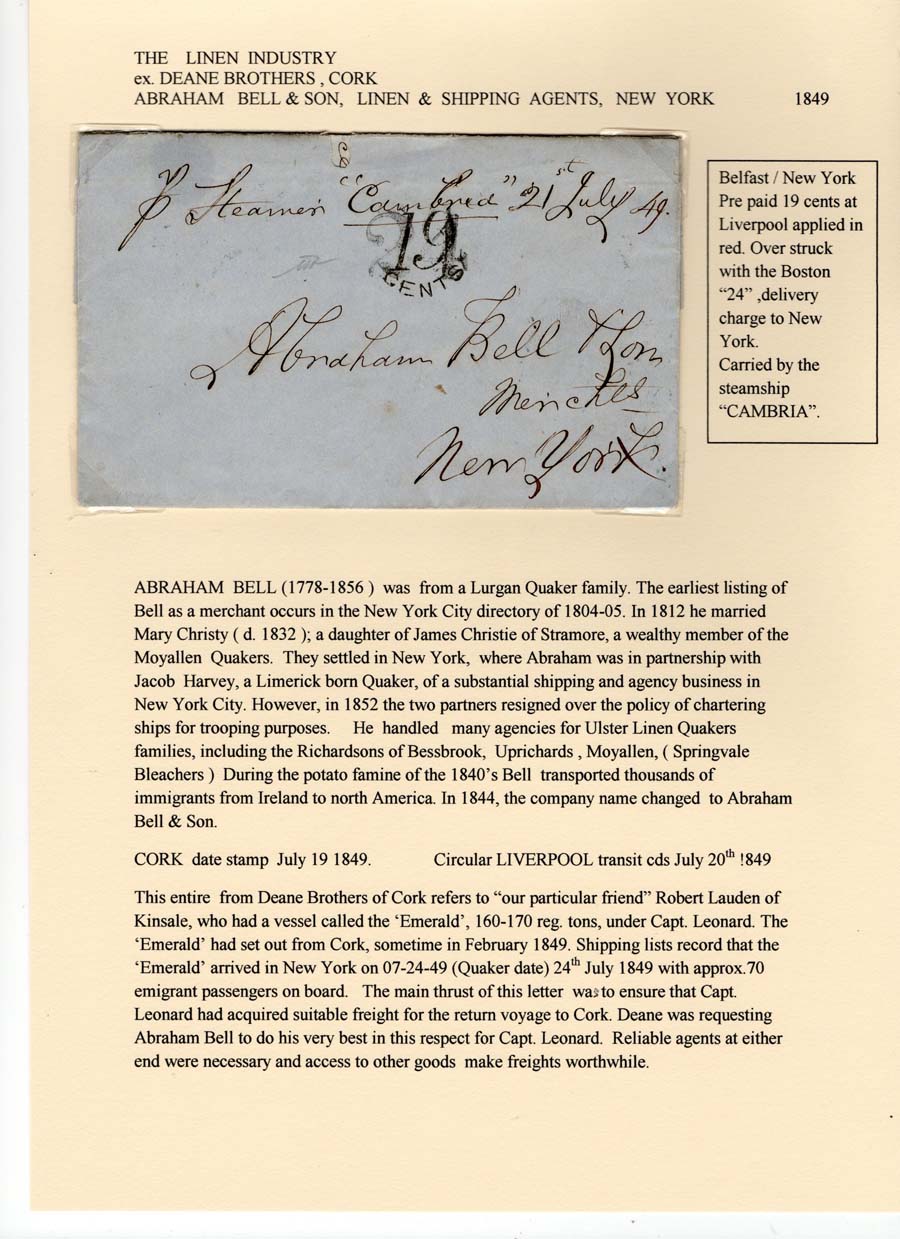 THE LINEN INDUSTRY
ex. DEANE BROTHERS , CORK
ABRAHAM BELL & SON, LINEN & SHIPPING AGENTS, NEW YORK 1849
p Steamer "Cambria" 21st July 49.
19
24
CENTS
Abraham Bell & Son
Merchts
New York.
Belfast / New York
Pre paid 19 cents at
Liverpool applied in
red. Over struck
with the Boston
“24” ,delivery
charge to New
York.
Carried by the
steamship
“CAMBRIA”.
ABRAHAM BELL (1778-1856 ) was from a Lurgan Quaker family. The earliest listing of
Bell as a merchant occurs in the New York City directory of 1804-05. In 1812 he married
Mary Christy ( d. 1832 ); a daughter of James Christie of Stramore, a wealthy member of the
Moyallen Quakers. They settled in New York, where Abraham was in partnership with
Jacob Harvey, a Limerick born Quaker, of a substantial shipping and agency business in
New York City. However, in 1852 the two partners resigned over the policy of chartering
ships for trooping purposes. He handled many agencies for Ulster Linen Quakers
families, including the Richardsons of Bessbrook, Uprichards , Moyallen, ( Springvale
Bleachers ) During the potato famine of the 1840’s Bell transported thousands of
immigrants from Ireland to north America. In 1844, the company name changed to Abraham
Bell & Son.
CORK date stamp July 19 1849. Circular LIVERPOOL transit cds July 20th !849
This entire from Deane Brothers of Cork refers to “our particular friend” Robert Lauden of
Kinsale, who had a vessel called the ‘Emerald’, 160-170 reg. tons, under Capt. Leonard. The
‘Emerald’ had set out from Cork, sometime in February 1849. Shipping lists record that the
‘Emerald’ arrived in New York on 07-24-49 (Quaker date) 24th July 1849 with approx.70
emigrant passengers on board. The main thrust of this letter was to ensure that Capt.
Leonard had acquired suitable freight for the return voyage to Cork. Deane was requesting
Abraham Bell to do his very best in this respect for Capt. Leonard. Reliable agents at either
end were necessary and access to other goods make freights worthwhile.